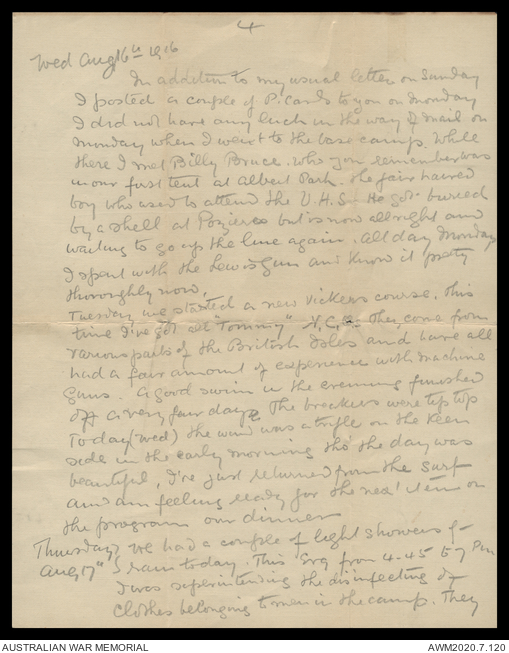 4
Wed Aug 16th 1916
In addition to my usual letter on Sunday
I posted a couple of P. Cards to you on Monday
I did not have any luck in the way of mail on
Monday when I went to the base camp. While
there I met Billy Bruce. who you remember was
in our first tent at Albert Park. the fair haired
boy who used to attend the U.H.S. He got buried
by a shell at Pozieres but is now allright and
waiting to go up the line again. All day Monday
I spent with the Lewis Gun and know it pretty
thoroughly now.
Tuesday we started a new Vickers course. this
time I've got all "Tommy" N.C.O. they come from
various parts of the British Isles and have all
had a fair amount of experience with machine
guns. A good swim in the evening finished
off a very fair day. The breakers were tip top
Today (wed) the wind was a trifle on the keen
side in the early morning tho' the day was
beautiful, I've just returned from the surf
and am feeling ready for the next item on
the program our dinner
Thursday We had a couple of light showers of
Aug 17th rain today. This Evg from 4-45 to 7 Pm
I was superintending the disinfecting of
clothes belonging to men in the camp. They
AUSTRALIAN WAR MEMORIAL
AWM2020.7.120